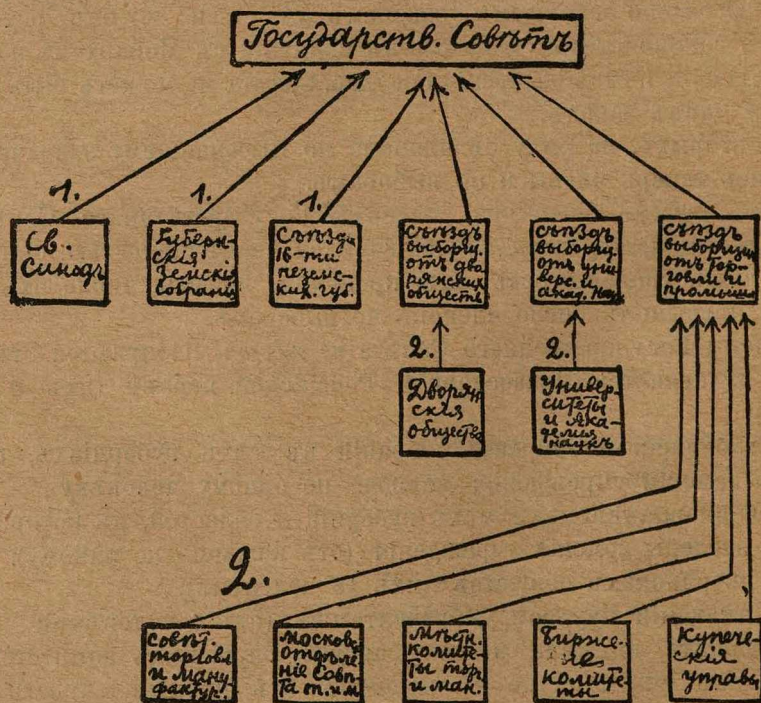 Государств. Совѣтъ
1.
1.
1.
Св.
Синодъ
Губерн-
скія
земскія
собранія
Съѣзды
16-ти
неземс-
ких. губ.
Съѣздъ
выборщ.
отъ дво
рянских
обществ
Съѣздъ
выборщ.
отъ уни
верс. и
акад. Наук
Съѣздъ
выборщик
отъ тор-
говли и
промышл
2.
2.
Дворян
скія
общества
Универ-
ситеты
и Ака-
демія
наукъ
2.
Совѣт.
торговл
и ману
фактур.
Москов.
отдѣле
ніе Совѣ
та т. и м
Мѣстн.
комите-
ты тор.
и ман.
Бирже-
вые
комите-
ты
Купече-
скія
управы